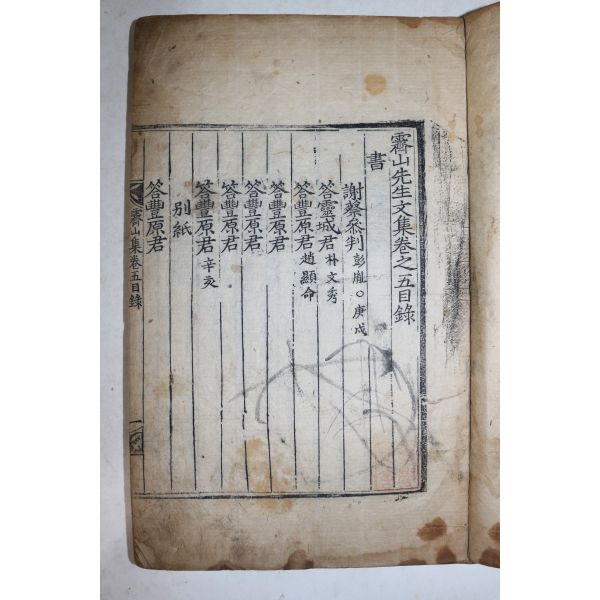 霽山先生文集卷之五目錄
書
謝蔡參判彭胤○庚戌
答靈城君朴文秀
答豐原君趙顯命
答豐原君
答豐原君
答豐原君
答豐原君辛亥
別紙
答豐原君
霽山集卷五目錄 一